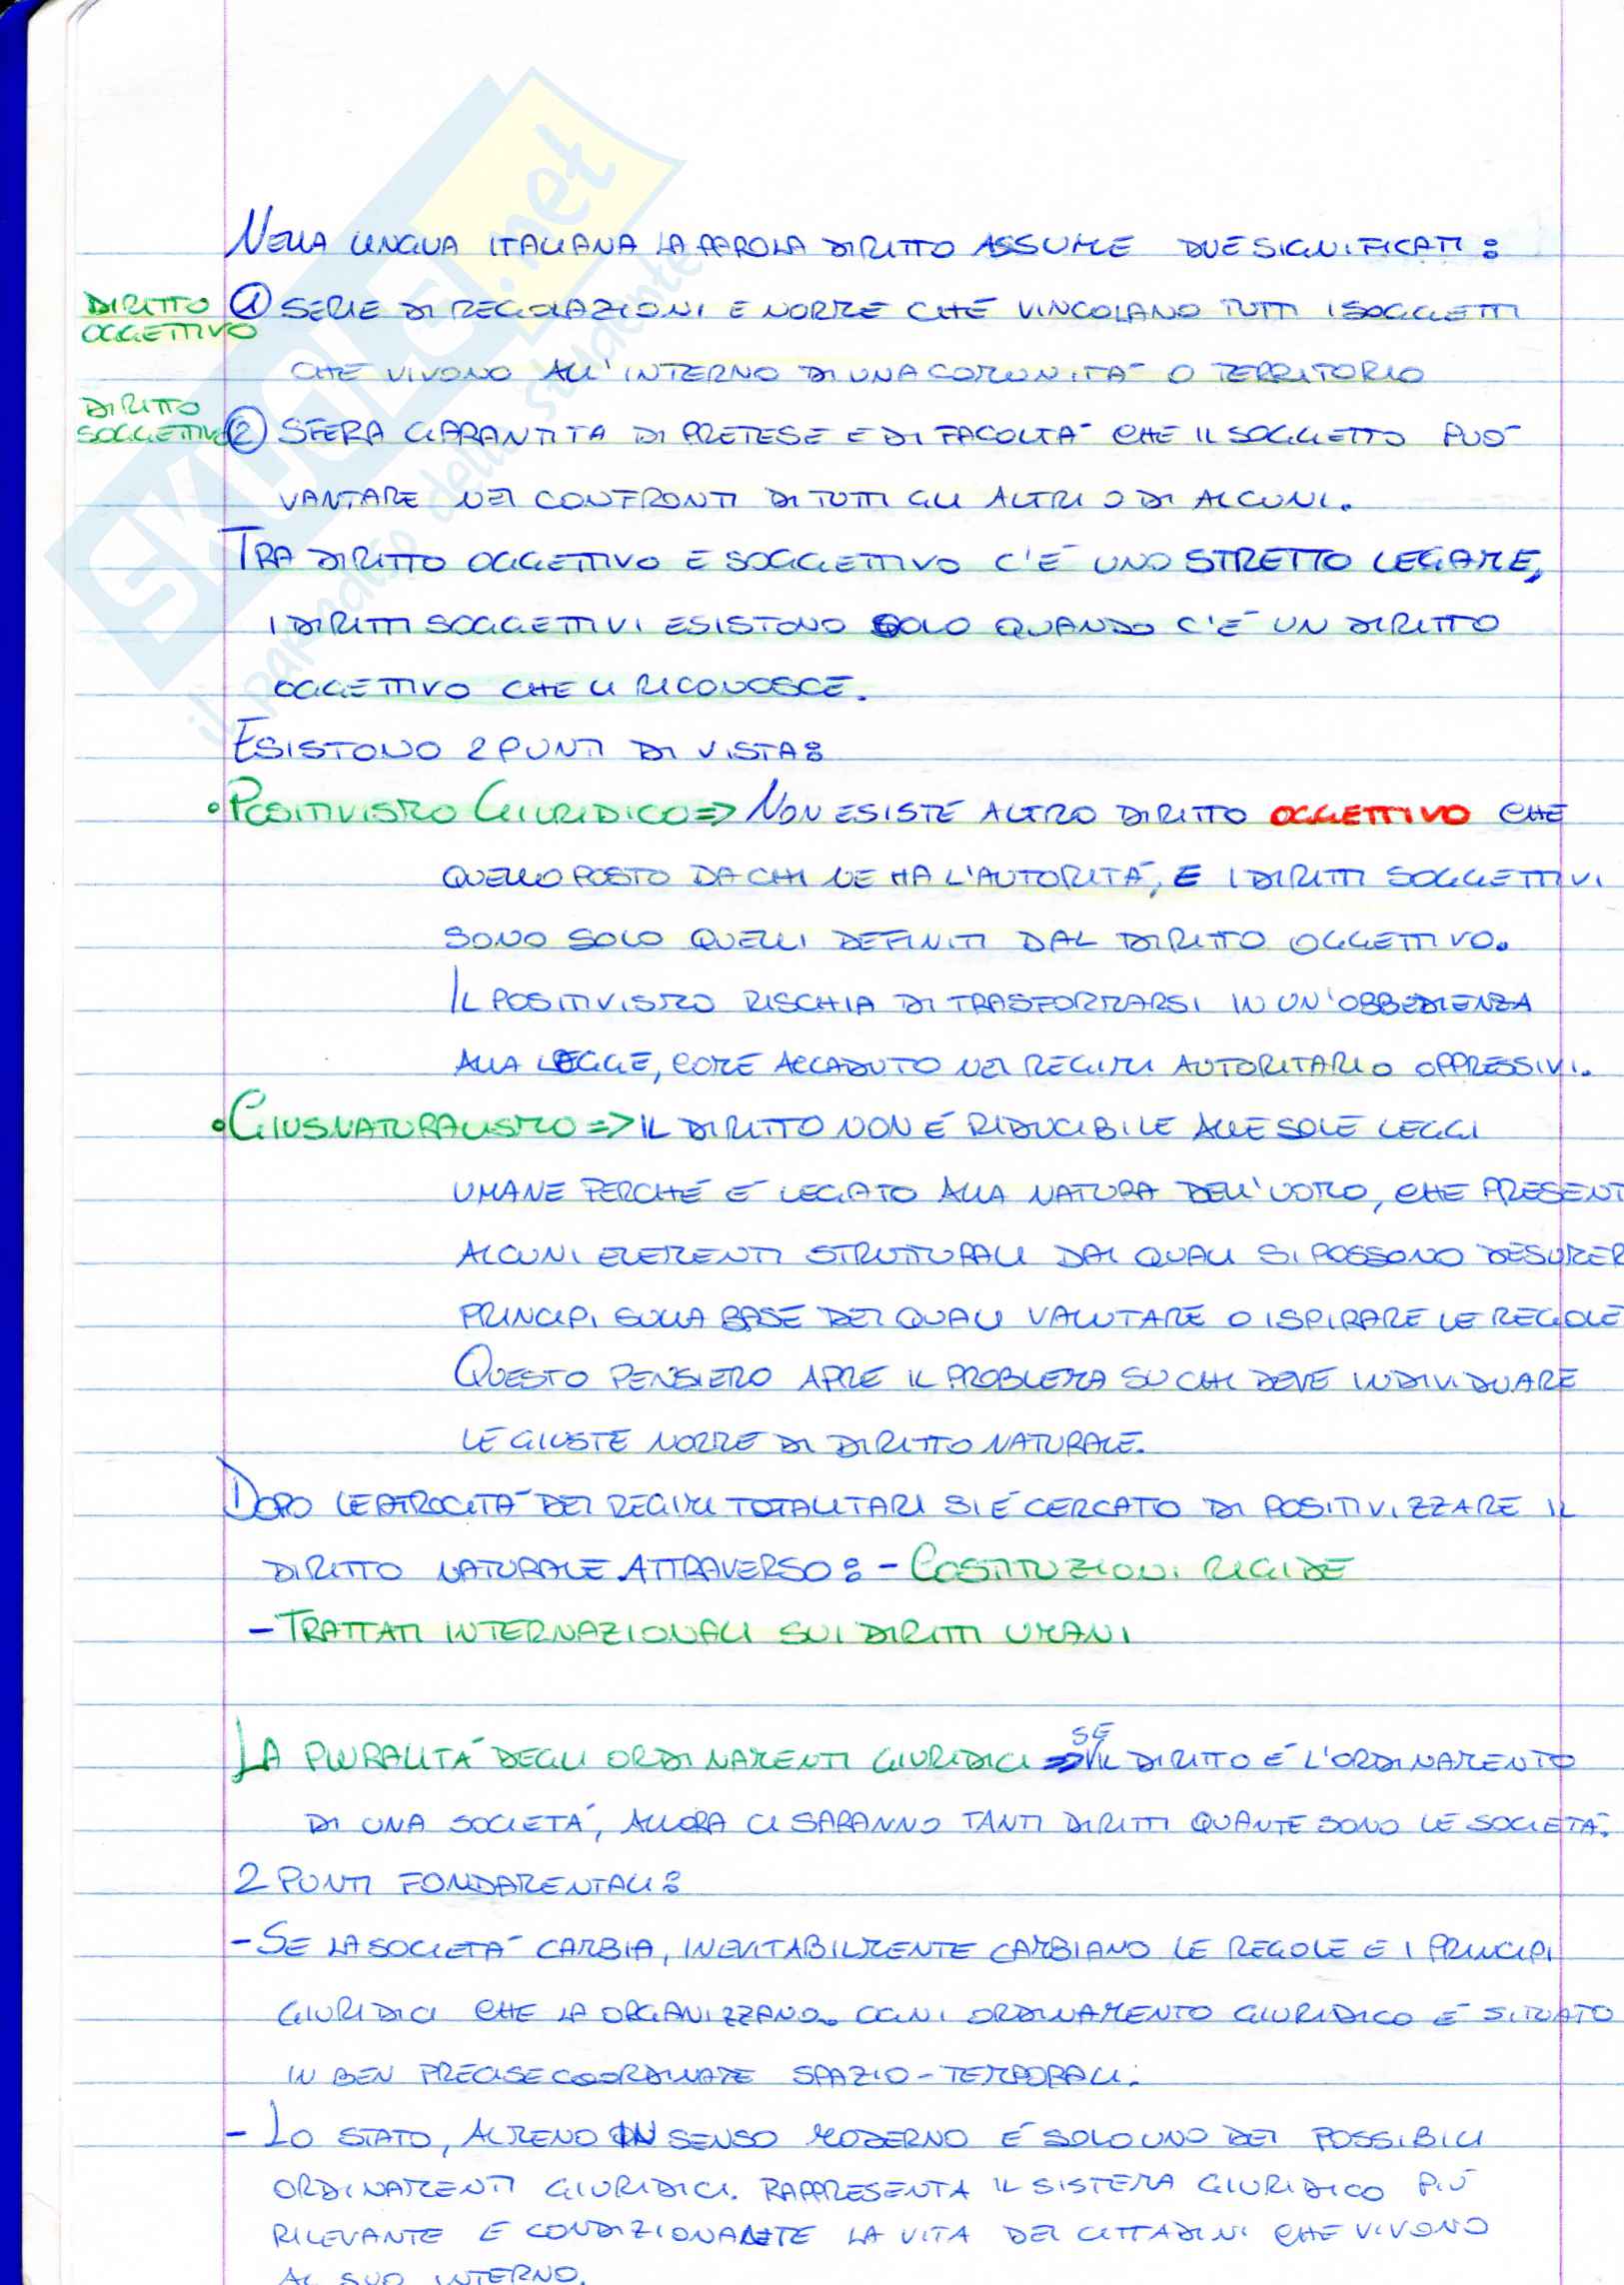 NELLA LINGUA ITALIANA LA PAROLA DIRITTO ASSUME DUE SIGNIFICATI:
DIRITTO OGGETTIVO
① SERIE DI REGOLAZIONI E NORME CHE VINCOLANO TUTTI I SOGGETTI
CHE VIVONO ALL'INTERNO DI UNA COMUNITÀ O TERRITORIO
DIRITTO SOGGETTIVO
② SFERA GARANTITA DI PRETESE E DI FACOLTÀ CHE IL SOGGETTO PUÒ
VANTARE NEI CONFRONTI DI TUTTI GLI ALTRI O DI ALCUNI.
TRA DIRITTO OGGETTIVO E SOGGETTIVO C'È UNO STRETTO LEGAME,
I DIRITTI SOGGETTIVI ESISTONO SOLO QUANDO C'È UN DIRITTO
OGGETTIVO CHE LI RICONOSCE.
ESISTONO 2 PUNTI DI VISTA:
• POSITIVISMO GIURIDICO => NON ESISTE ALTRO DIRITTO OGGETTIVO CHE
QUELLO POSTO DA CHI NE HA L'AUTORITÀ, E I DIRITTI SOGGETTIVI
SONO SOLO QUELLI DEFINITI DAL DIRITTO OGGETTIVO.
IL POSITIVISMO RISCHIA DI TRASFORMARSI IN UN'OBBEDIENZA
ALLA LEGGE, COME ACCADUTO NEI REGIMI AUTORITARI O OPPRESSIVI.
• GIUSNATURALISMO => IL DIRITTO NON È RIDUCIBILE ALLE SOLE LEGGI
UMANE PERCHÉ È LEGATO ALLA NATURA DELL'UOMO, CHE PRESENT
ALCUNI ELEMENTI STRUTTURALI DAI QUALI SI POSSONO DESUMER
PRINCIPI SULLA BASE DEI QUALI VALUTARE O ISPIRARE LE REGOLE
QUESTO PENSIERO APRE IL PROBLEMA SU CHI DEVE INDIVIDUARE
LE GIUSTE NORME DI DIRITTO NATURALE.
DOPO LE ATROCITÀ DEI REGIMI TOTALITARI SI È CERCATO DI POSITIVIZZARE IL
DIRITTO NATURALE ATTRAVERSO: - COSTITUZIONI RIGIDE
- TRATTATI INTERNAZIONALI SUI DIRITTI UMANI
LA PLURALITÀ DEGLI ORDINAMENTI GIURIDICI => SE IL DIRITTO È L'ORDINAMENTO
DI UNA SOCIETÀ, ALLORA CI SARANNO TANTI DIRITTI QUANTE SONO LE SOCIETÀ.
2 PUNTI FONDAMENTALI:
- SE LA SOCIETÀ CAMBIA, INEVITABILMENTE CAMBIANO LE REGOLE E I PRINCIPI
GIURIDICI CHE LA ORGANIZZANO. OGNI ORDINAMENTO GIURIDICO È SITUATO
IN BEN PRECISE COORDINATE SPAZIO-TEMPORALI.
- LO STATO, ALMENO IN SENSO MODERNO È SOLO UNO DEI POSSIBILI
ORDINAMENTI GIURIDICI. RAPPRESENTA IL SISTEMA GIURIDICO PIÙ
RILEVANTE E CONDIZIONANTE LA VITA DEI CITTADINI CHE VIVONO
AL SUO INTERNO.
SKUOLA.net
il paradiso dello studente